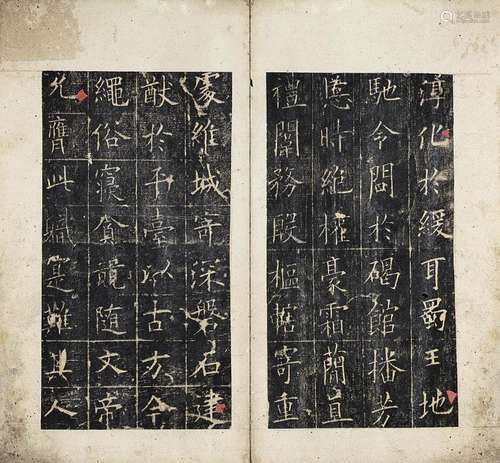 淳化於緩耳蜀王地
處維城寄深磐石建
馳令問於碣館播芳
猷於平臺以古方今
慝時絕權豪霜簡直
繩俗寢貪競隨文帝
禮闈務殷樞轄寄重
允膺此職寔難其人